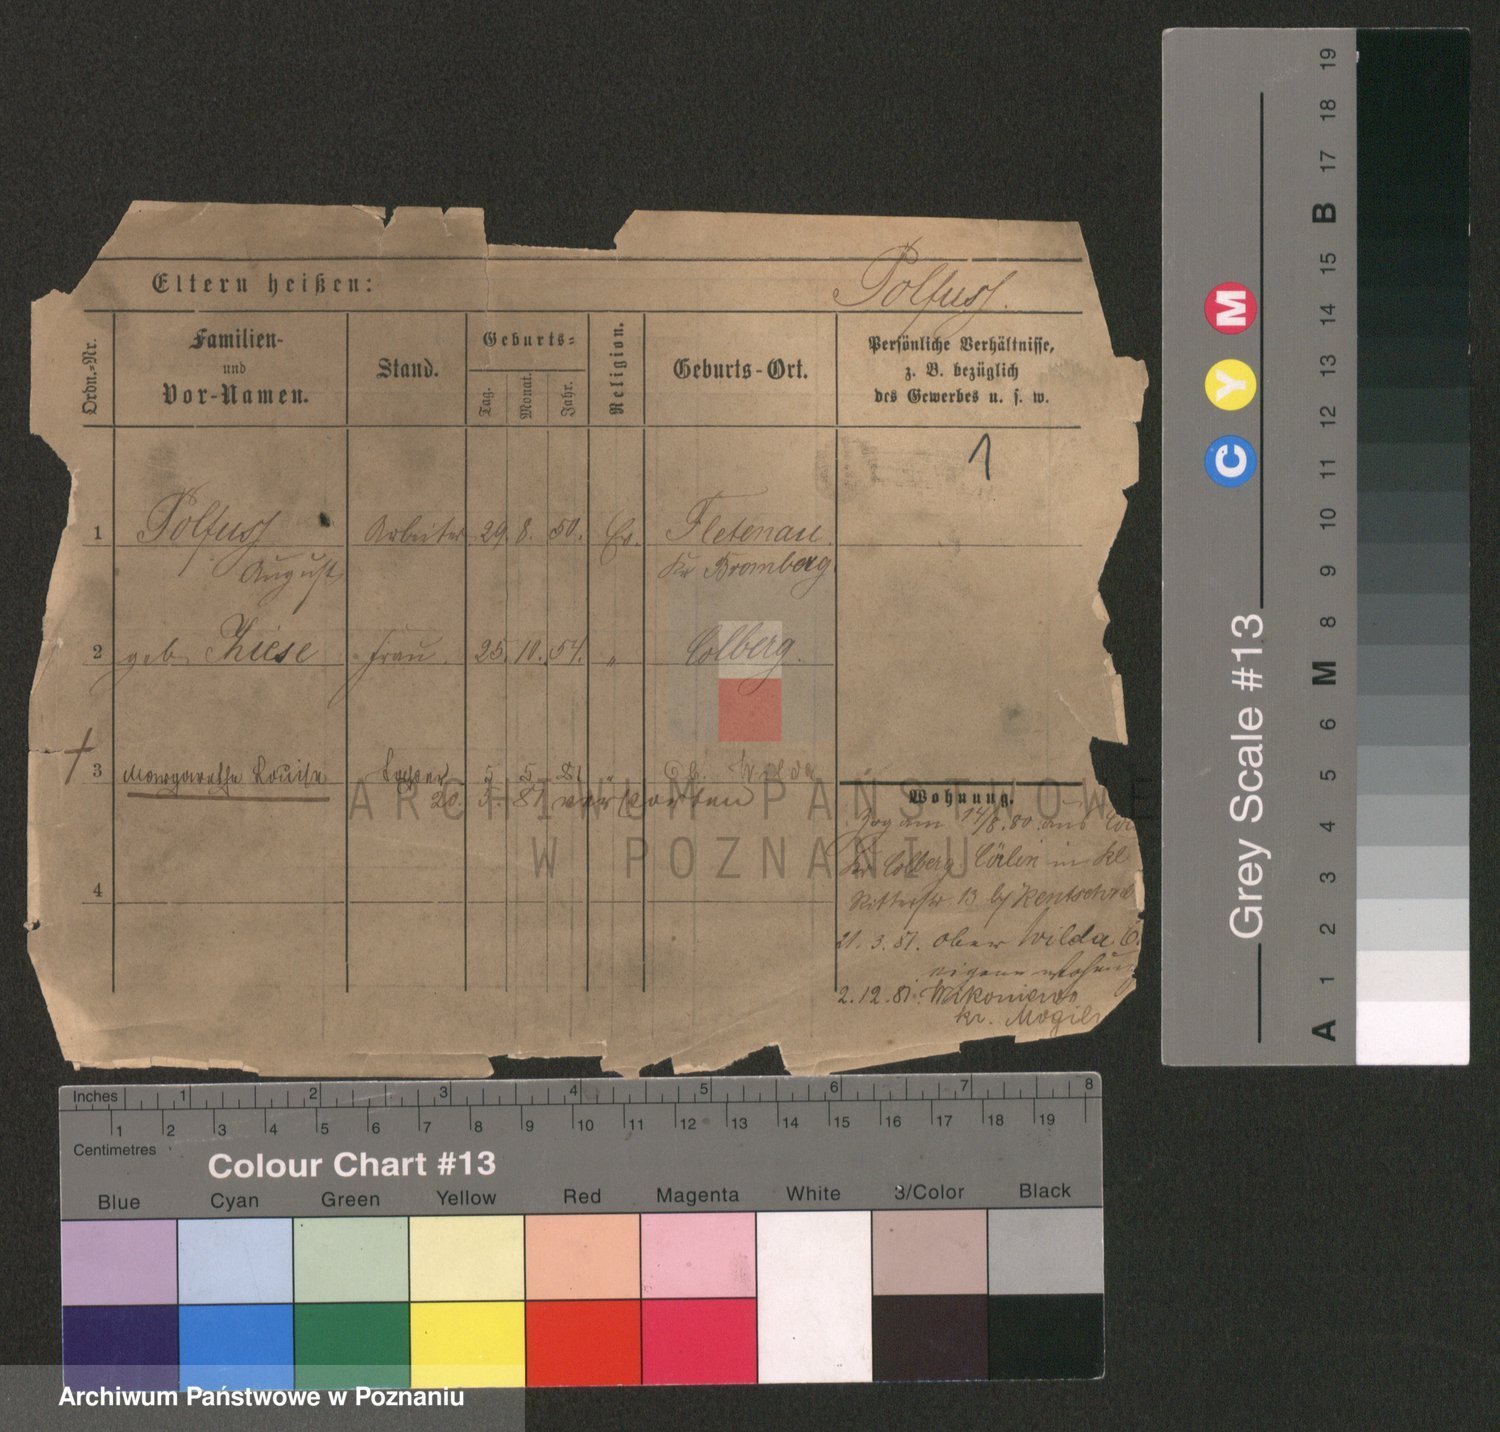 Eltern heißen:
Polfuss.
Ordn.-Nr.
Familien-
und
Vor-Namen.
Stand.
Geburts-
Tag.
Monat.
Jahr.
Religion.
Geburts-Ort.
Persönliche Verhältnisse,
z. B. bezüglich
des Gewerbes u. s. w.
1
1 Polfuss Arbeiter 29. 8. 50. Ev. Fletenau.
August Kr Bromberg
2 geb. Thiese Frau 25. 10. 54. " Colberg.
3 Margarethe Louise 5 5 81 " Ob. Wilda
20. 5. 81 verstorben
4
Wohnung.
Zog am 14/8. 80 aus
Kr Colberg Cörlin in Kl
Ritterstr. 13 bei
21. 3. 81. Ober Wilda
eigene Wohnung
2. 12. 81.
Kr. Mogil
ARCHIWUM PAŃSTWOWE
W POZNANIU
Inches 1 2 3 4 5 6 7 8
1 2 3 4 5 6 7 8 9 10 11 12 13 14 15 16 17 18 19
Centimetres
Colour Chart #13
Blue Cyan Green Yellow Red Magenta White 3/Color Black
Archiwum Państwowe w Poznaniu
Grey Scale #13
C Y M
A 1 2 3 4 5 6 M 8 9 10 11 12 13 14 15 B 17 18 19